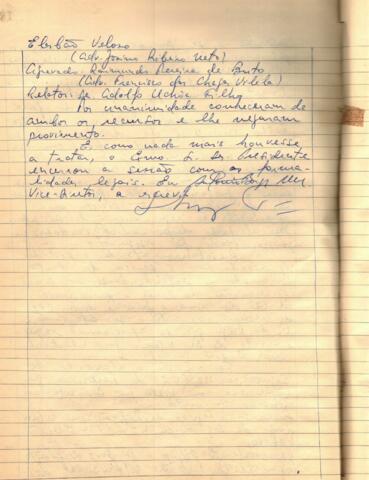 Elesbão Veloso
(Adv. Josino Ribeiro Neto)
Apelado. Raimundo Pereira de Brito
(Adv. Francisco das Chagas Vilela)
Relator: Dr. Adolfo Uchôa Filho
Por unanimidade conheceram de
ambos os recursos e lhe negaram
provimento.
E como nada mais houvesse
a tratar, o Exmo. S. Dr. Presidente
encerrou a sessão com as forma-
lidades legais. Eu
Vice-Diretor, a escrevi